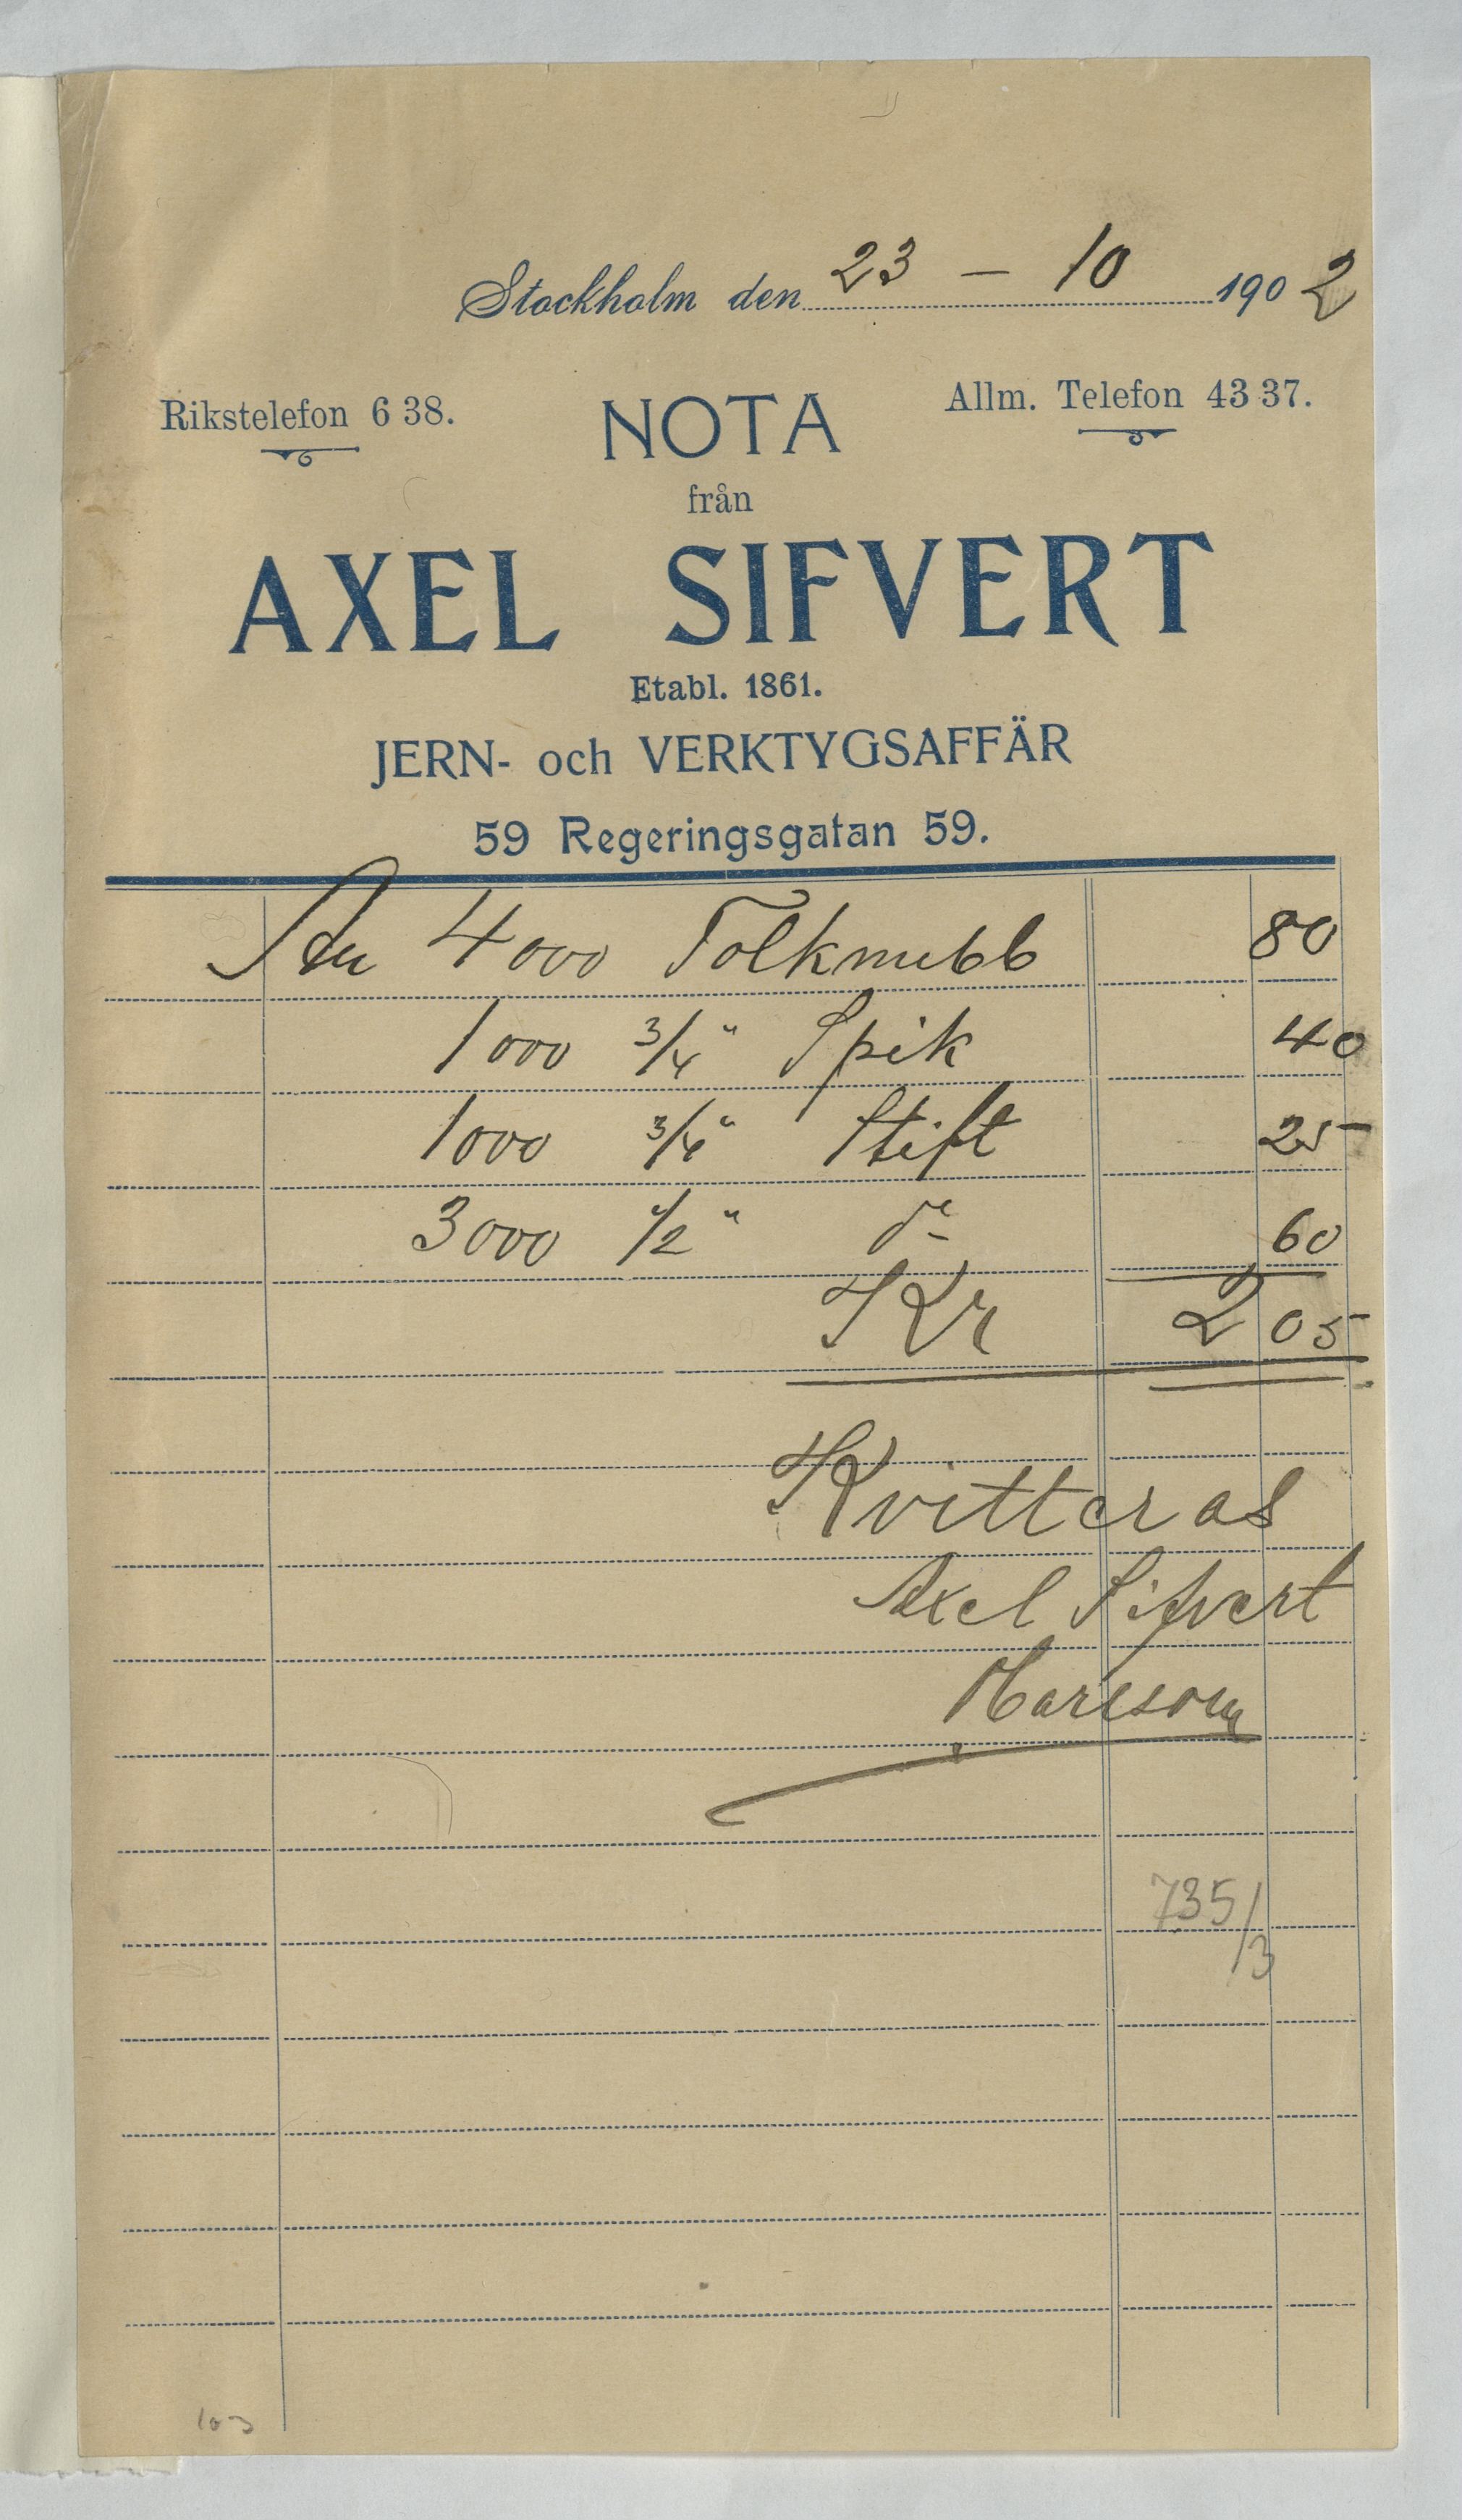 Stockholm den 23 – 10 1902
Rikstelefon 6 38.
NOTA
Allm. Telefon 43 37.
från
AXEL SIFVERT
Etabl. 1861.
JERN- och VERKTYGSAFFÄR
59 Regeringsgatan 59.
4000 Tolknubb 80
1000 3/4" Spik 40
1000 3/4" Stift 25
3000 1/2" do 60
Kr 2 05
Kvitteras
Axel Sifvert
735/3
103